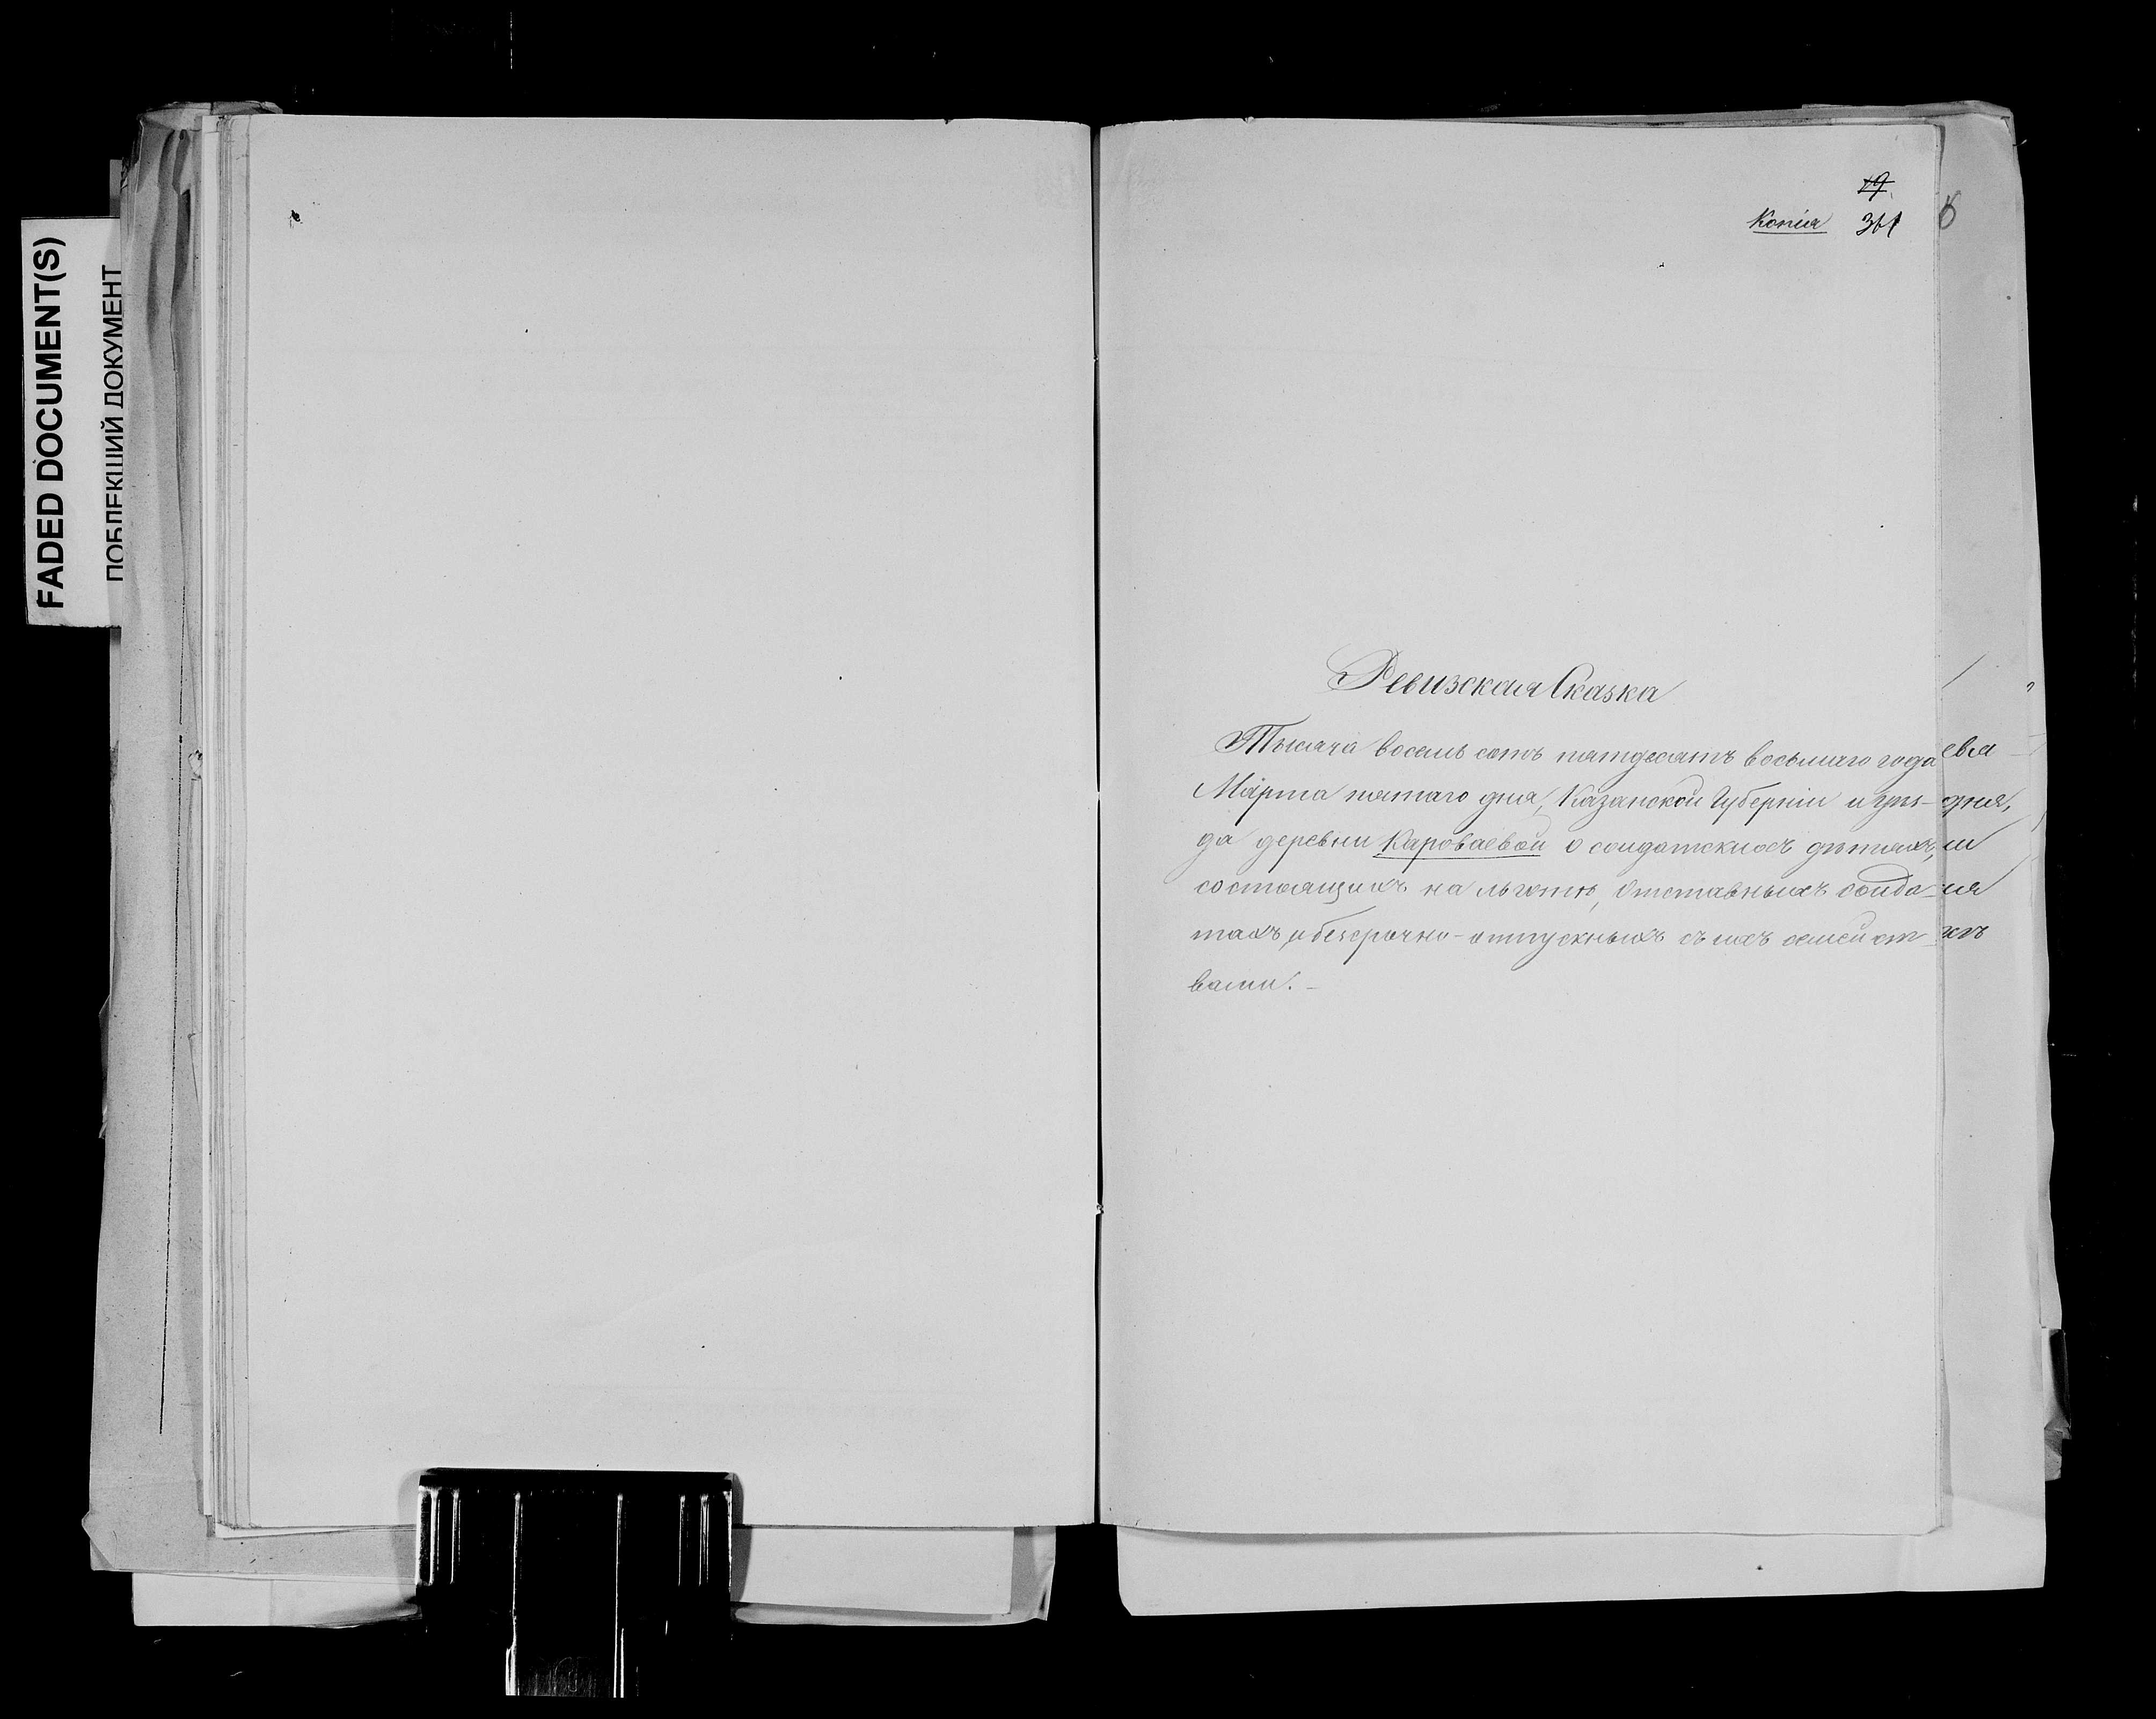 FADED DOCUMENT(S)
ПОБЛЕКШИЙ ДОКУМЕНТ
19
Копія
Ревизская Сказка
Тысяча восемь сотъ пятдесятъ восьмаго года
Марта пятаго дня, Казанской Губерніи и уѣз-
да деревни Кароваевой о солдатскихъ дѣтяхъ,
состоящихъ на льготѣ, Отставныхъ солда-
тахъ, и безсрочно-отпускныхъ съ ихъ семейст
вами.-
евя
дня,